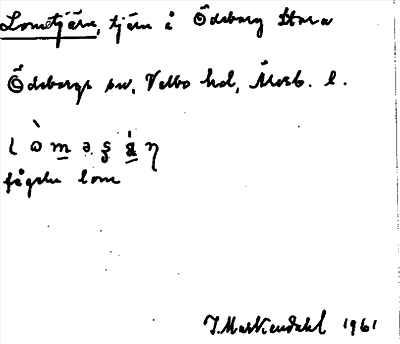 Lometjärn, tjärn å Ödeborg Stora
Ödeborgs sn, Valbo hd, Älvsb. l.
fågeln lom
J. Markendahl 1961